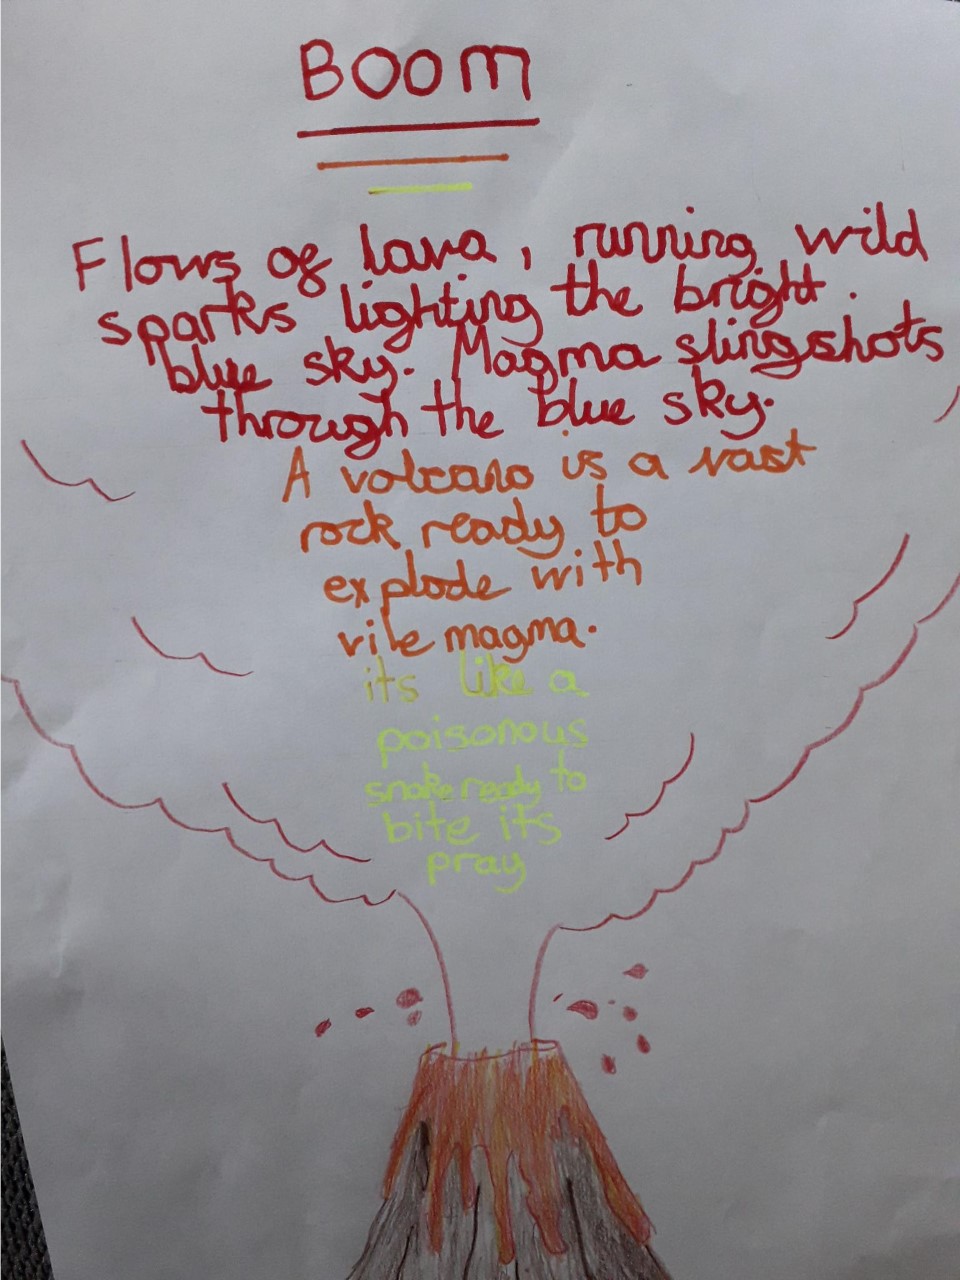 BOOM
Flows of lava, running wild
sparks lighting the bright
blue sky. Magma slingshots
through the blue sky.
A volcano is a vast
rock ready to
explode with
vile magma.
its like a
poisonous
snake ready to
bite its
pray